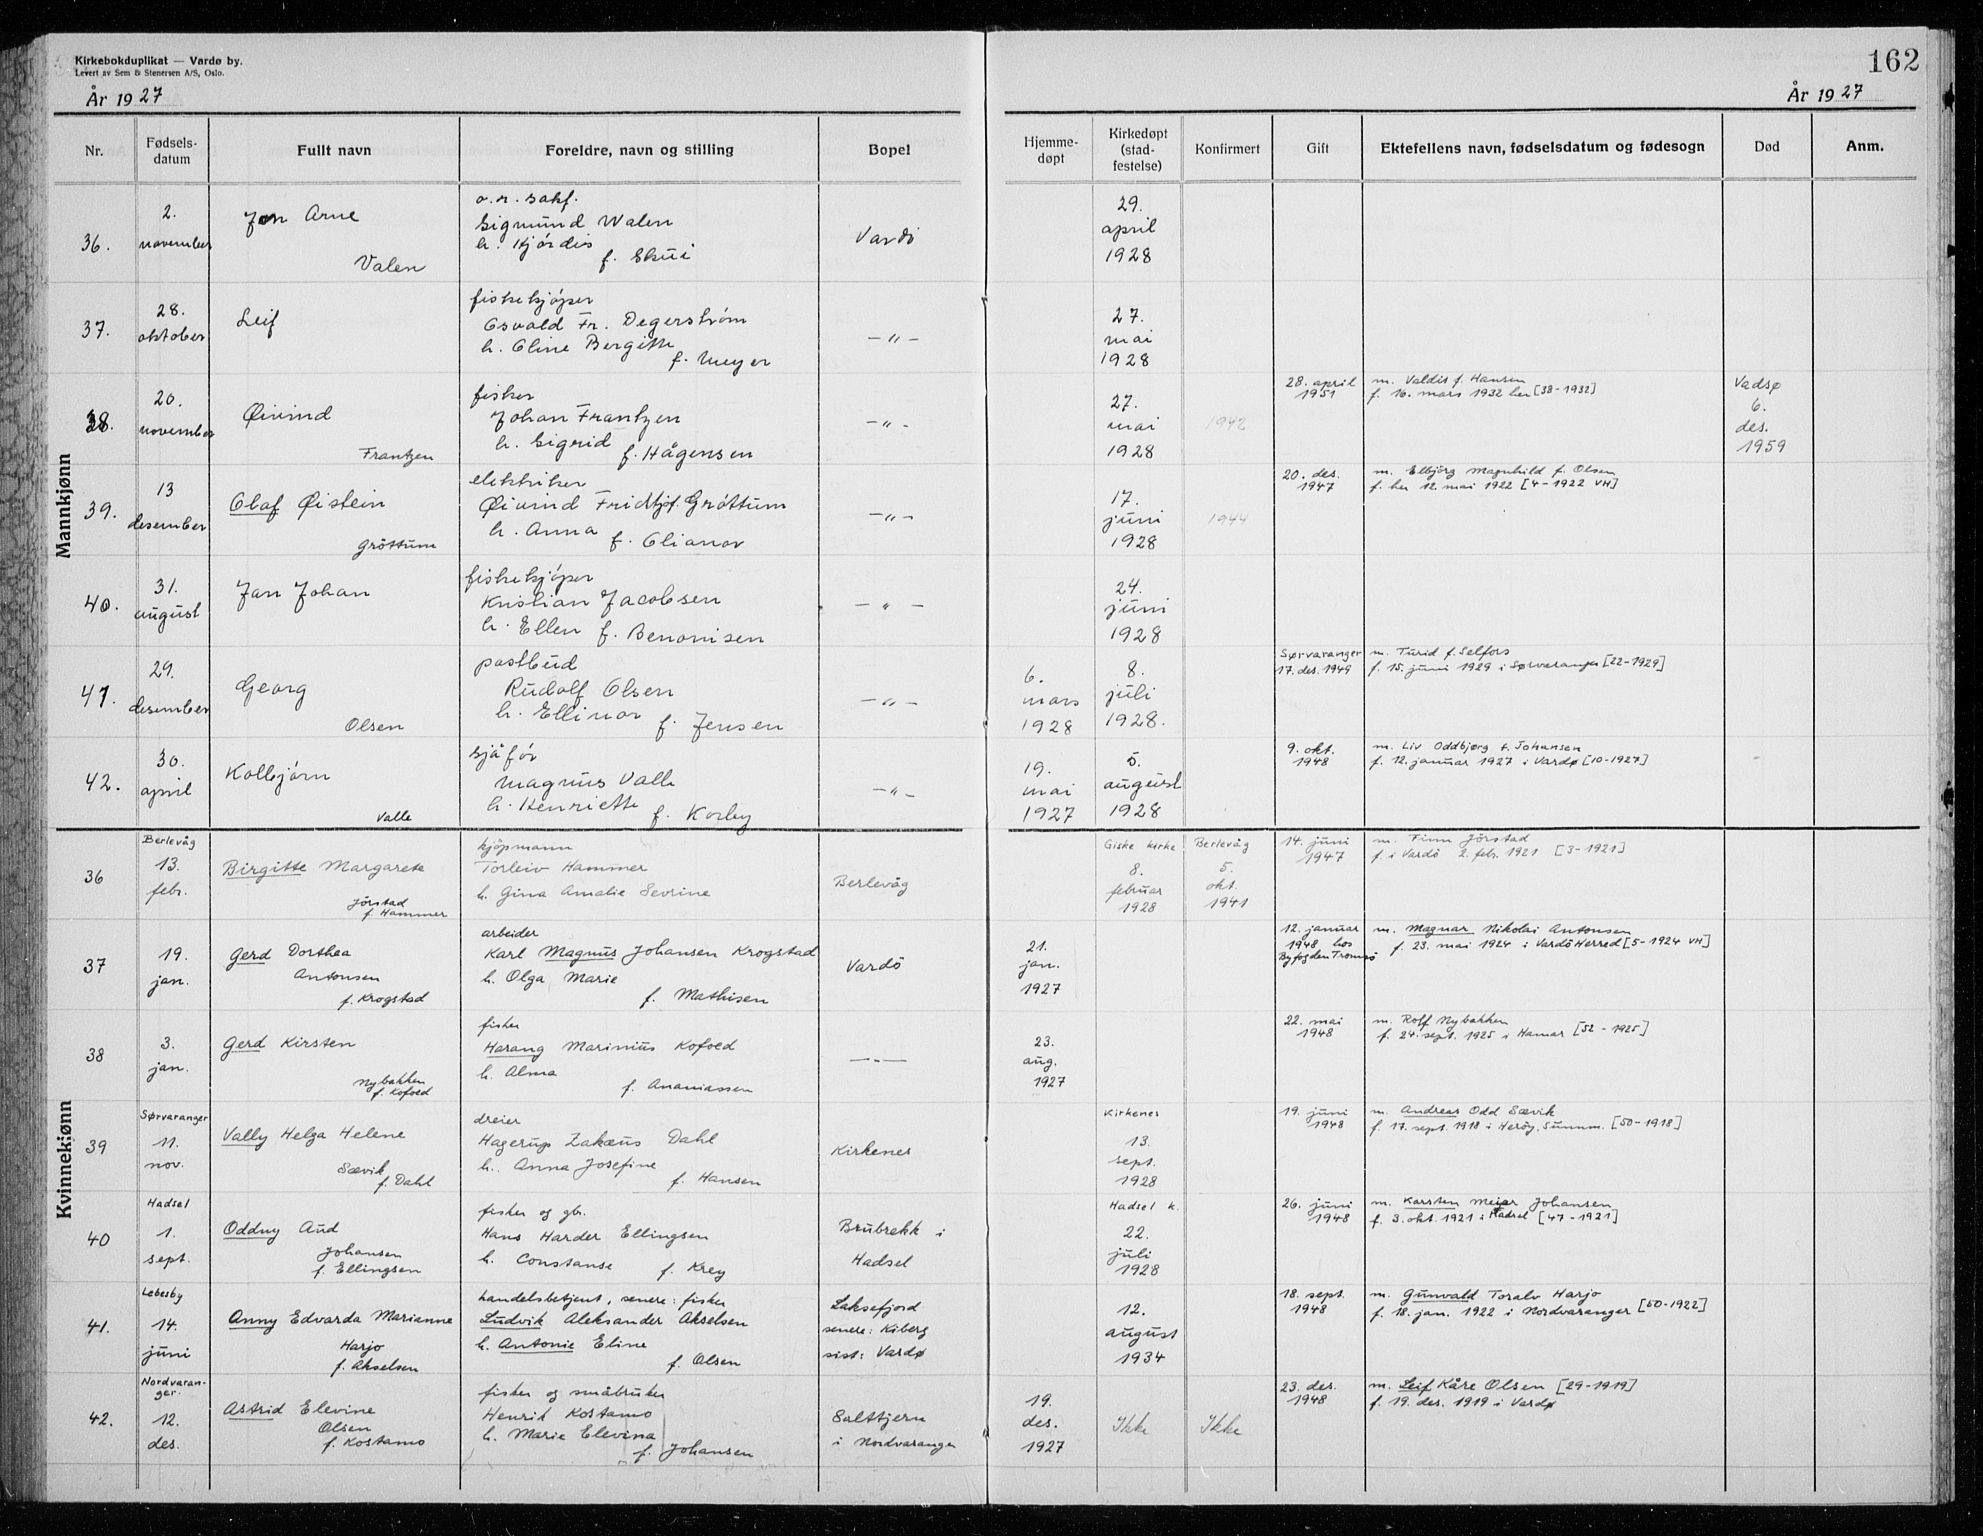 Kirkebokduplikat — Vardø by.
Levert av Sem & Stenersen A/S, Oslo.
162
År 1927
År 1927
Nr. Fødselsdatum Fullt navn Foreldre, navn og stilling Bopel Hjemmedøpt Kirkedøpt (stadfestelse) Konfirmert Gift Ektefellens navn, fødselsdatum og fødesogn Død Anm.
Mannkjønn
36. 2. november
Jon Arne
Valen
o.r. sakf.
Sigmund Walen
h. Hjórdis
f. Skui
Vardö
29. april 1928
37. 28. oktober
Leif
fiskekjöper
Osvald Fr. Degerström
h. Oline Bergitte
f. Meyer
—"—
27. mai 1928
38. 20. november
Øivind
Frantzen
fisker
Johan Frantzen
h. Sigrid
f. Hågensen
—"—
27. mai 1928
1942
28. april 1951
m. Valdis f. Hansen
f. 16. mars 1932 her [38-1932]
Vadsø 6. des. 1959
39. 13 desember
Olaf Øistein
Gröttum
elektriker
Øivind Fridtjof Gröttum
h. Anna
f. Olianov
—"—
17. juni 1928
1944
20. des. 1947
m. Elbjörg Magnhild f. Olsen
f. her 12. mai 1922 [4-1922 VH]
40. 31. august
Jan Johan
fiskekjöper
Kristian Jacobsen
h. Ellen f. Benonisen
— " —
24. juni 1928
41. 29. desember
Georg
Olsen
postbud
Rudolf Olsen
h. Ellinor
f. Jensen
—"—
6. mars 1928
8. juli 1928.
Sørvaranger 17. des. 1949
m. Turid f. Selfors
f. 15. juni 1929 i Sørvaranger [22-1929]
42. 30. april
Kolbjörn
Valle
sjåför
Magnus Valle
h. Henriette
f. Korby
—"—
19. mai 1927
5. august 1928
9. okt. 1948
m. Liv Oddbjørg f. Johansen
f. 12. januar 1927 i Vardø [10-1927]
Kvinnekjønn
36 Berlevåg 13. febr.
Birgitte Margarete
Jörstad
f. Hammer
kjöpmann
Torleiv Hammer
h. Gina Amalie Sevrine
Berlevåg
Giske kirke 8. februar 1928
Berlevåg 5. okt. 1941
14. juni 1947
m. Finn Jörstad
f. i Vardö 2. febr. 1921 [3-1921]
37 19. jan.
Gerd Dorthea
Antonsen
f. Krogstad
arbeider
Karl Magnus Johansen Krogstad
h. Olga Marie
f. Mathisen
Vardö
21. jan. 1927
12. januar 1948 hos Byfogden Tromsö
m. Magnar Nikolai Antonsen
f. 23. mai 1924 i Vardö Herred [5-1924 VH]
38 3. jan.
Gerd Kirsten
Nybakken
f. Kofoed
fisker
Harang Marinius Kofoed
h. Alma
f. Ananiassen
—"—
23. aug. 1927
22. mai 1948
m. Rolf Nybakken
f. 24. sept. 1925 i Hamar [52 - 1925]
39 Sørvaranger 11. nov.
Vally Helga Helene
Sævik
f. Dahl
dreier
Hagerup Zakæus Dahl
h. Anna Josefine
f. Hansen
Kirkenes
Kirkenes 13. sept. 1928
19. juni 1948
m. Andreas Odd Sævik
f. 17. sept. 1918 i Herøy, Sunnm. [50-1918]
40 Hadsel 1. sept.
Oddny Aud
Johansen
f. Ellingsen
fisker og gb.
Hans Harder Ellingsen
h. Constanse
f. Krey
Brubrekk i Hadsel
Hadsel k. 22. juli 1928
26. juni 1948
m. Karsten Meier Johansen
f. 3. okt. 1921 i Hadsel [47-1921]
41. Lebesby 14. juni
Anny Edvarda Marianne
Harjo
f. Akselsen
handelsbetjent, senere: fisker
Ludvik Aleksander Akselsen
h. Antonie Eline
f. Olsen
Laksefjord
senere: Kiberg
sist: Vardø
12. august 1934
18. sept. 1948
m. Gunvald Toralv Harjo
f. 18. jan. 1922 i Nordvaranger [50-1922]
42. Nordvaranger. 12. des.
Astrid Elevine
Olsen
f. Kostamo
fisker og småbruker
Henrik Kostamo
h. Marie Elevina
f. Johansen
Saltjern
i Nordvaranger
19. des. 1927
Ikke
Ikke
23. des. 1948
m. Leif Kåre Olsen [29-1919]
f. 19. des. 1919 i Vardø